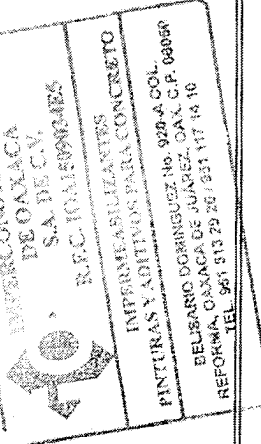 DE OAXACA
S.A. DE C.V.
IMPERMEABILIZANTES
PINTURAS Y ADITIVOS PARA CONCRETO
BELISARIO DOMINGUEZ No. 920-A COL.
REFORMA, OAXACA DE JUAREZ, OAX. C.P. 68050
TEL. 951 513 29 20 / 951 117 14 10